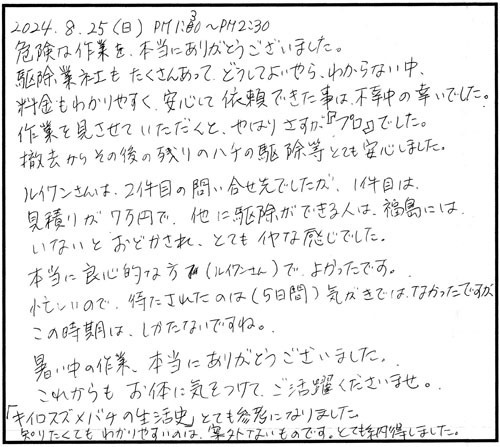 2024.8.25(日) PM1:30〜PM2:30
危険な作業を、本当にありがとうございました。
駆除業社もたくさんあって、どうしてよいやら、わからない中、
料金もわかりやすく、安心して依頼できた事は、不幸中の幸いでした。
作業を見させていただくと、やはりさすが『プロ』でした。
撤去からその後の残りのハチの駆除等とても安心しました。
ルイワンさんは、2件目の問い合せ先でしたが、1件目は、
見積りが7万円で、他に駆除ができる人は、福島には
いないとおどかされ、とてもイヤな感じでした。
本当に良心的な方(ルイワンさん)で、よかったです。
忙しいので、待たされたのは(5日間)気がきではなかったですが、
この時期は、しかたないですね。
暑い中の作業、本当にありがとうございました。
これからもお体に気をつけて、ご活躍くださいませ。
「キイロスズメバチの生活史」とても参考になりました。
知りたくてもわかりやすいのは、案外ないものです。とても納得しました。